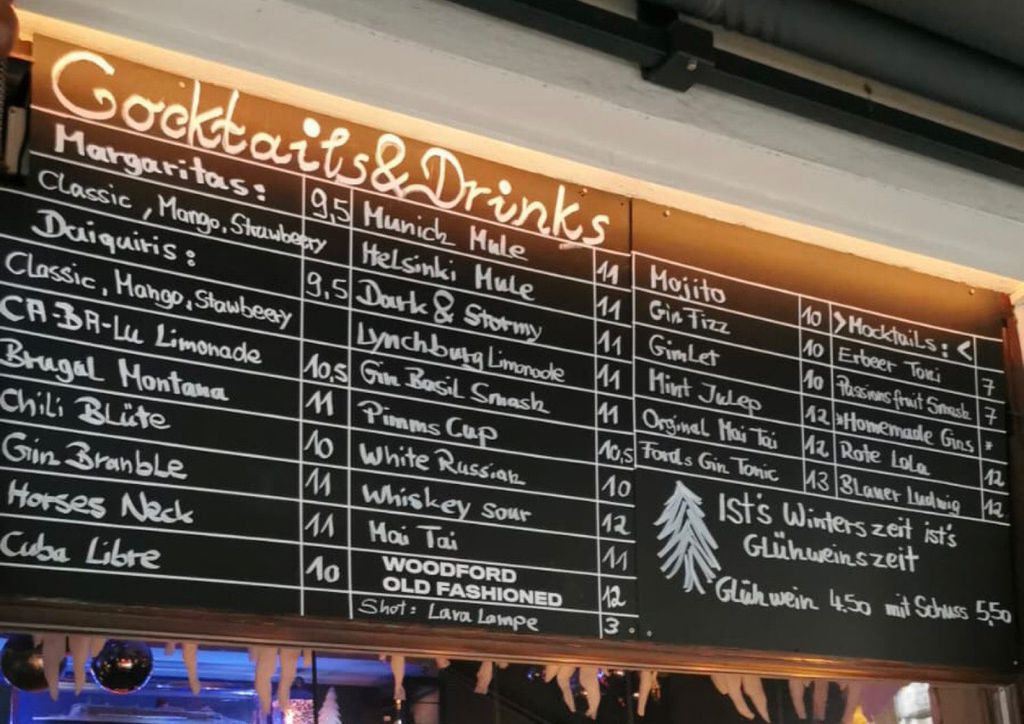 Cocktails & Drinks
Margaritas:
Classic, Mango, Strawbeery 9,5
Daiquiris:
Classic, Mango, Stawbeery 9,5
CA-BA-Lu Limonade
Brugal Montana 10,5
Chili Blüte 11
Gin Bramble 10
Horses Neck 11
Cuba Libre 11
10
Munich Mule 11
Helsinki Mule 11
Dark & Stormy 11
Lynchburg Limonade 11
Gin Basil Smash 11
Pimms Cup 10,5
White Russian 10
Whiskey sour 12
Mai Tai 11
WOODFORD
OLD FASHIONED 12
Shot: Lava Lampe 3.
Mojito 10
Gin Fizz 10
Gimlet 10
Mint Julep 12
Orginal Mai Tai 12
Fords Gin Tonic 13
>Mocktails: <
Erbeer Toni 7
Passionsfruit Smash 7
*Homemade Gins *
Rote Lola 12
Blauer Ludwig 12
Ist's Winterszeit ist's
Glühweinszeit
Glühwein 4.50 mit Schuss 5,50